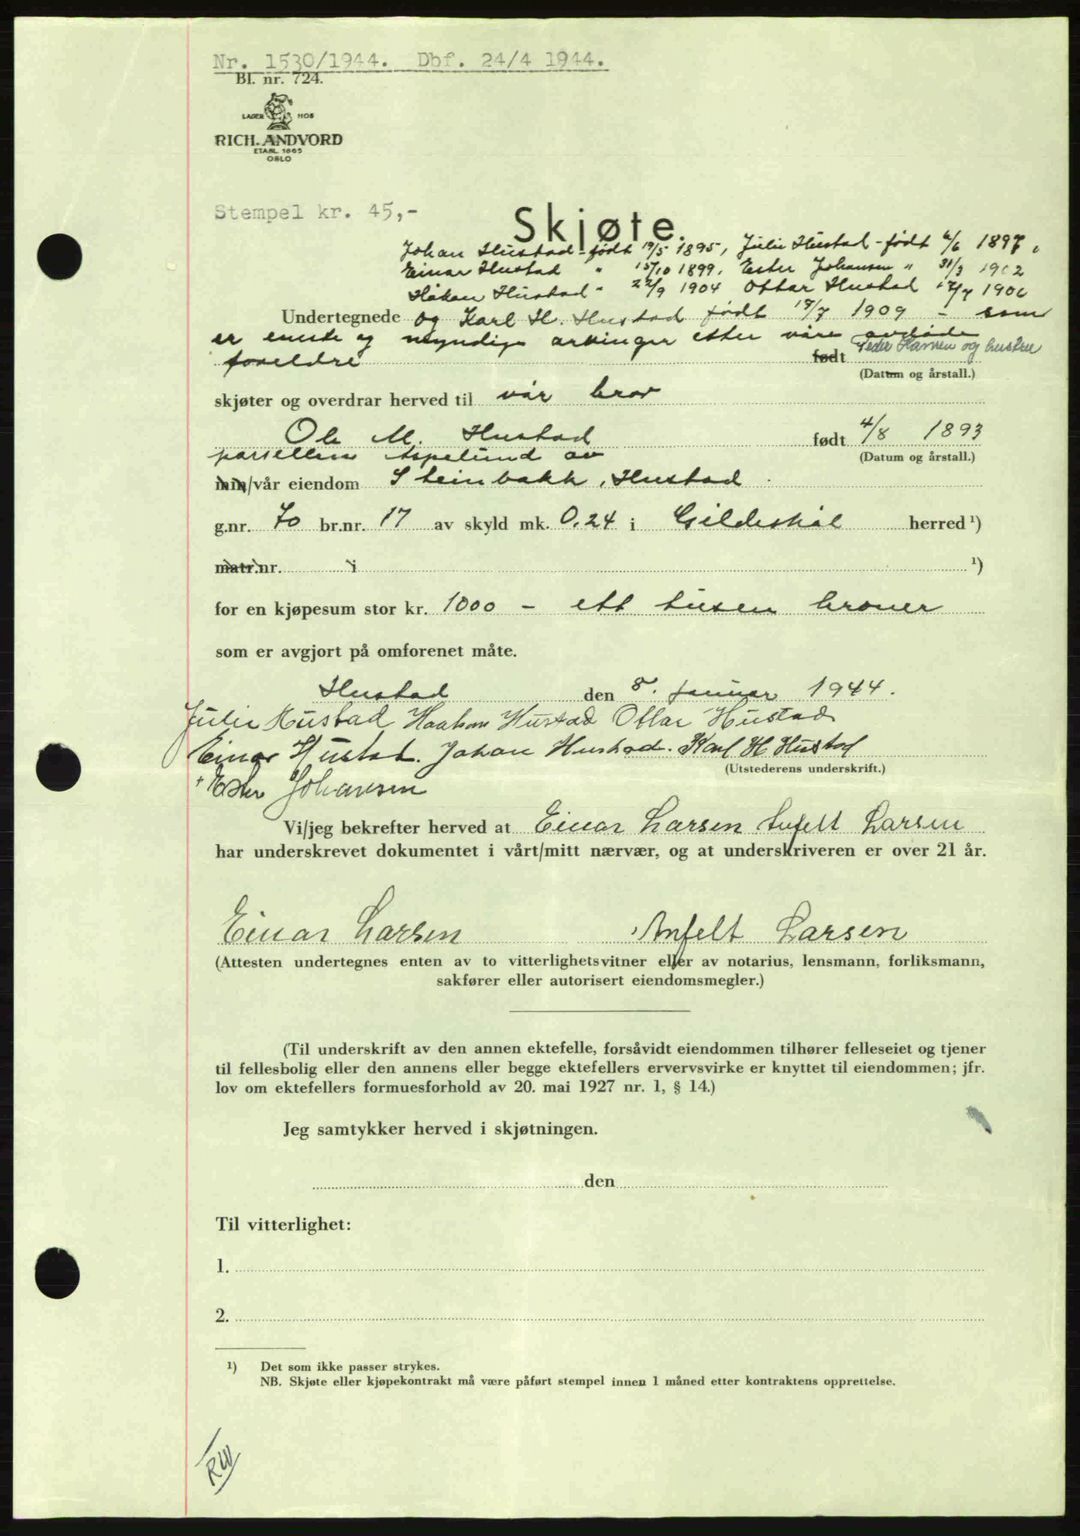 Nr. 1530/1944. Dbf. 24/4 1944.
Bl. nr. 724.
LAGER HOS
RICH. ANDVORD
ETABL. 1865
OSLO
Stempel kr. 45,-
Skjøte.
Johan Hustad - født 19/5 1895, Julie Hustad - født 6/6 1897,
Einar Hustad " 15/10 1899, Ester Johansen " 31/3 1902
Håkon Hustad " 22/9 1904 Ottar Hustad 12/7 1906
Undertegnede og Karl H. Hustad født 19/7 1909 - som
er eneste og myndige arvinger etter våre avdøde
foreldre født Peder Hansen og hustru
(Datum og årstall.)
skjøter og overdrar herved til vår bror
Ole M. Hustad født 4/8 1893
(Datum og årstall.)
parsellen Aspelund av
min/vår eiendom Steinbakk, Hustad.
g.nr. 70 br.nr. 17 av skyld mk. 0.24 i Gildeskål herred ¹)
matr.nr. i ¹)
for en kjøpesum stor kr. 1000 - ett tusen kroner
som er avgjort på omforenet måte.
Hustad den 8. januar 1944.
Julie Hustad Haakon Hustad Ottar Hustad
Einar Hustad. Johan Hustad. Karl H Hustad
(Utstederens underskrift.)
Ester Johansen
Vi/jeg bekrefter herved at Einar Larsen Anfelt Larsen
har underskrevet dokumentet i vårt/mitt nærvær, og at underskriveren er over 21 år.
Einar Larsen Anfelt Larsen
(Attesten undertegnes enten av to vitterlighetsvitner eller av notarius, lensmann, forliksmann,
sakfører eller autorisert eiendomsmegler.)
(Til underskrift av den annen ektefelle, forsåvidt eiendommen tilhører felleseiet og tjener
til fellesbolig eller den annens eller begge ektefellers ervervsvirke er knyttet til eiendommen; jfr.
lov om ektefellers formuesforhold av 20. mai 1927 nr. 1, § 14.)
Jeg samtykker herved i skjøtningen.
den
Til vitterlighet:
1.
2.
¹) Det som ikke passer strykes.
NB. Skjøte eller kjøpekontrakt må være påført stempel innen 1 måned etter kontraktens opprettelse.
RW